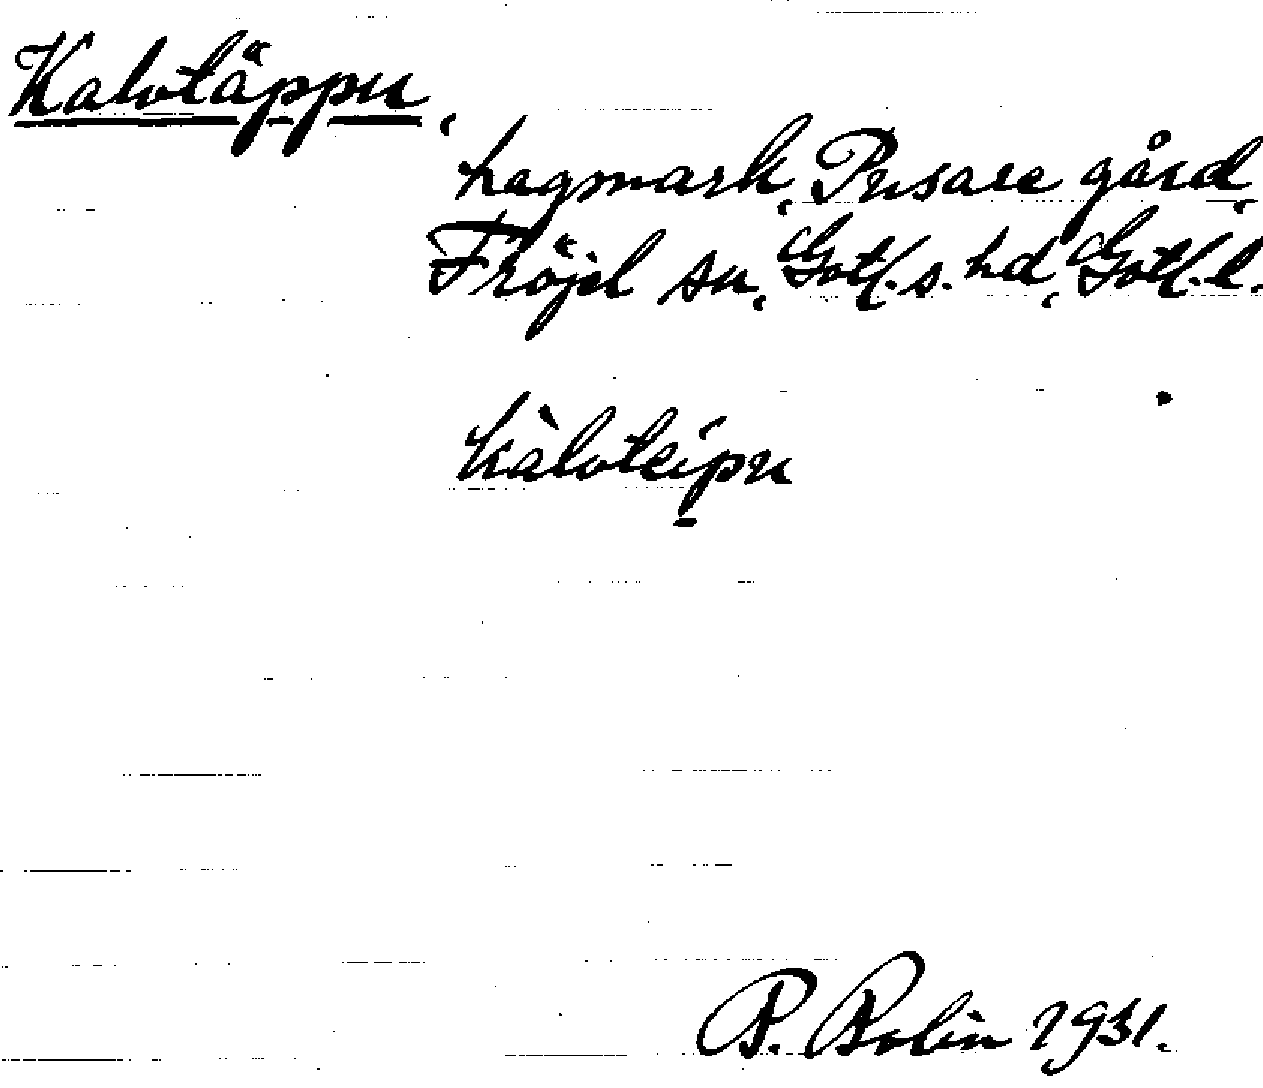 Kalvtäppu,
hagmark, Pusare gård,
Fröjel sn, Gotl. s. hd, Gotl. l.
kàlvteípu
P. Bolin 1931.